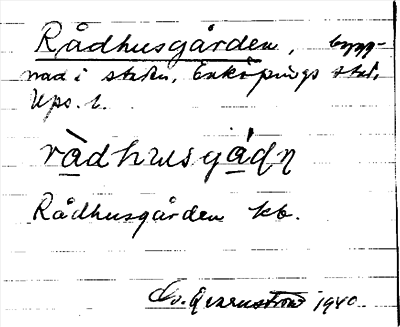 Rådhusgården, bygg-
nad i staden, Enköpings stad,
Ups. l.
ràdhusgádn
Rådhusgården kb.
1940.